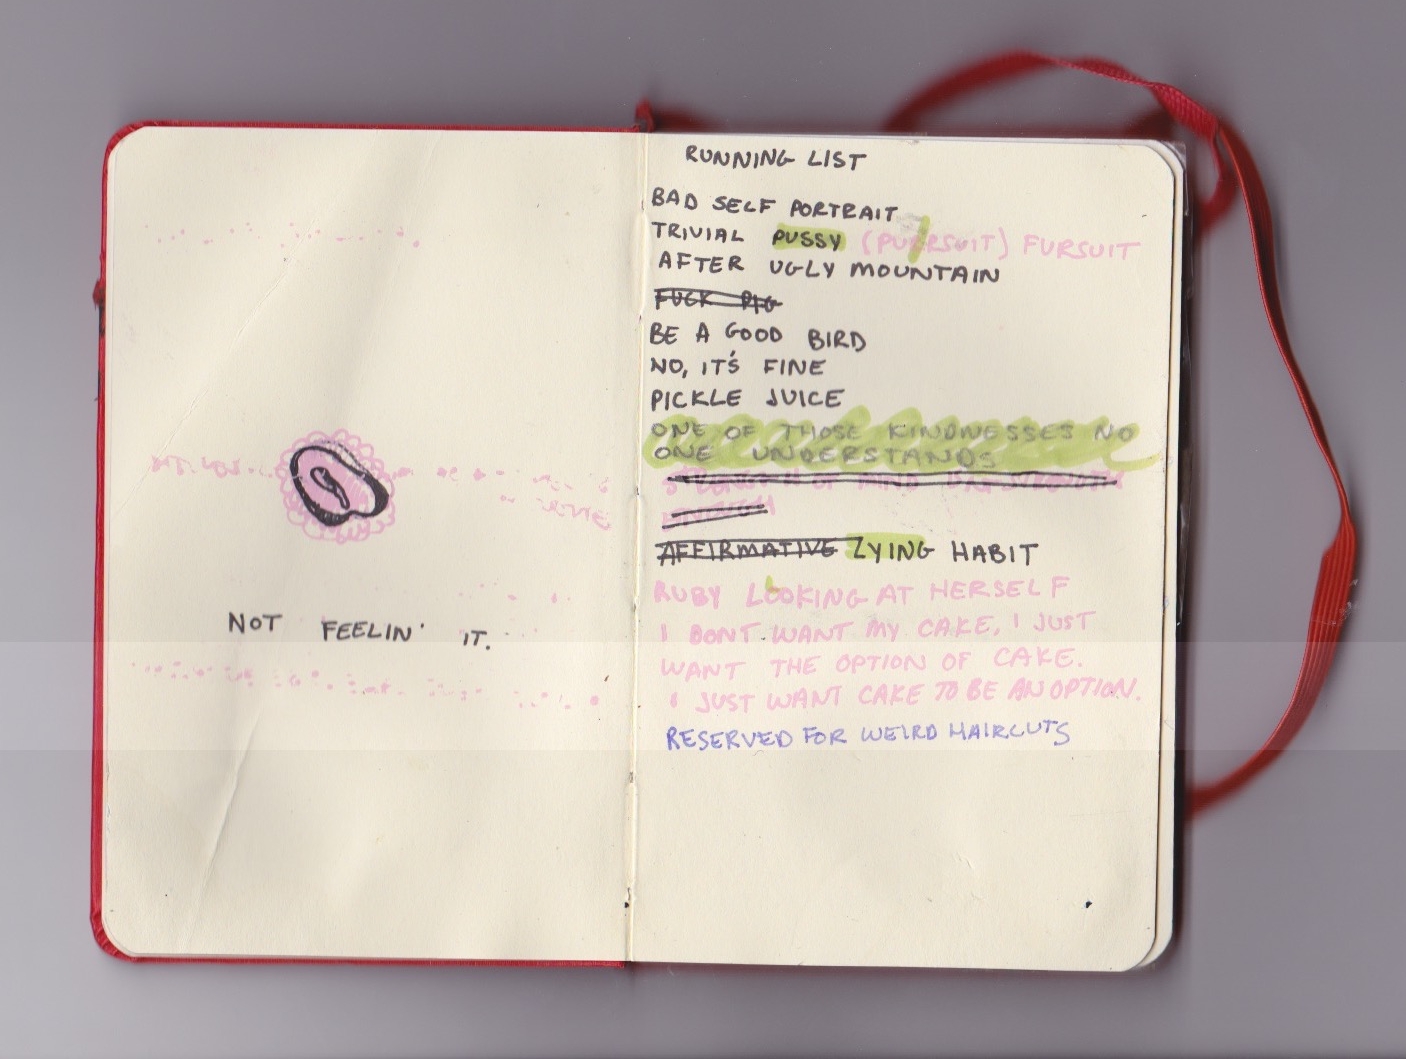 NOT FEELIN' IT.
RUNNING LIST
BAD SELF PORTRAIT
TRIVIAL PUSSY (PURRSUIT) FURSUIT
AFTER UGLY MOUNTAIN
FUCK PIG
BE A GOOD BIRD
NO, IT'S FINE
PICKLE JUICE
ONE OF THOSE KINDNESSES NO
ONE UNDERSTANDS
OF MIND
AFFIRMATIVE LYING HABIT
RUBY LOOKING AT HERSELF
I DONT WANT MY CAKE, I JUST
WANT THE OPTION OF CAKE.
I JUST WANT CAKE TO BE AN OPTION.
RESERVED FOR WEIRD HAIRCUTS